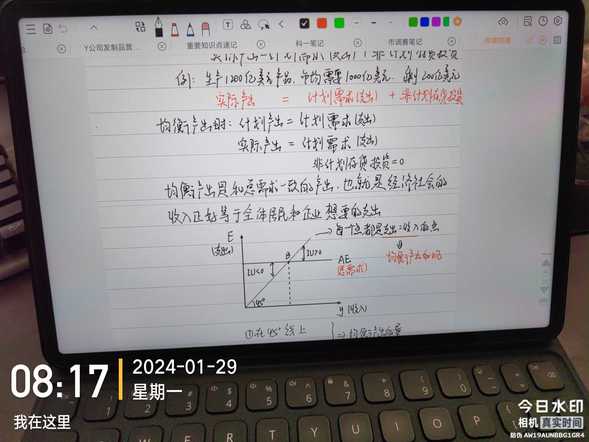 Y公司发制品营...
重要知识点速记
科一笔记
市调赛笔记
例: 生产1200亿美元产品, 市场需要1000亿美元, 剩200亿美元
实际产出 = 计划需求(支出) + 非计划存货投资
均衡产出时: 计划产出 = 计划需求(支出)
实际产出 = 计划需求(支出)
非计划存货投资=0
均衡产出是和总需求一致的产出, 也就是经济社会的
收入正好等于全体居民和企业想要的支出
E
(支出)
每一点都是支出=收入的点
IU>0
B
AE
(总需求)
IU<0
45°
y (收入)
①在45°线上
08:17
2024-01-29
星期一
我在这里
今日水印
相机 真实时间
防伪 AW19AUNBBG1GR4